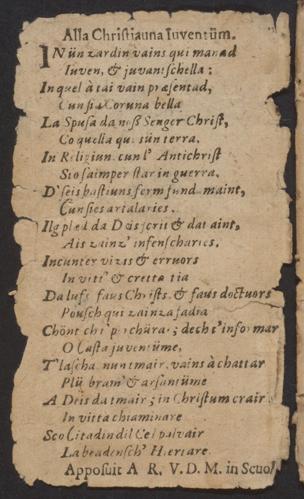 Alla Christiauna Iuventüm.
IN ün zardin vains qui manad
Iuven, & juvantschella:
In quel à tai vain præsentad,
Cun sia Coruna bella
La Spusa da noß Senger Christ,
Co quella qui sün terra.
In Religiun cun l' Antichrist
Sto saimper star in guerra.
D'seis bastiuns ferm fundamaint,
Cun sies artalaries.
Ilg pled da Deis scrit & dat aint,
Ais zainz' infenscharies.
Incunter vizis & erruors
In vitt' & cretta tia
Da lufs faus Christs & faus doctuors
Pousch qui zainza fadia
Chönt chi perchüra; dech t'informar
O Casta juventüme,
T'lascha nun tmair, vains à chattar
Plü bram' & arsantüme
A Deis da tmair; in Christum crair
In vitta chiaminare
Sco Citadin dil Cel palvair
La beadensch' Hiertare.
Apposuit A R. V. D. M. in Scuol